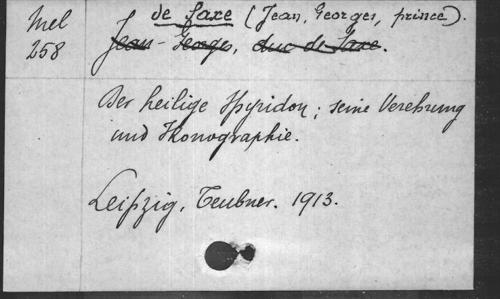 Mel
258
de Saxe (Jean, Georges, prince).
Jean-Georges, duc de Saxe.
Der heilige Spyridon; seine Verehrung
und Ikonographie.
Leipzig, Teubner. 1913.